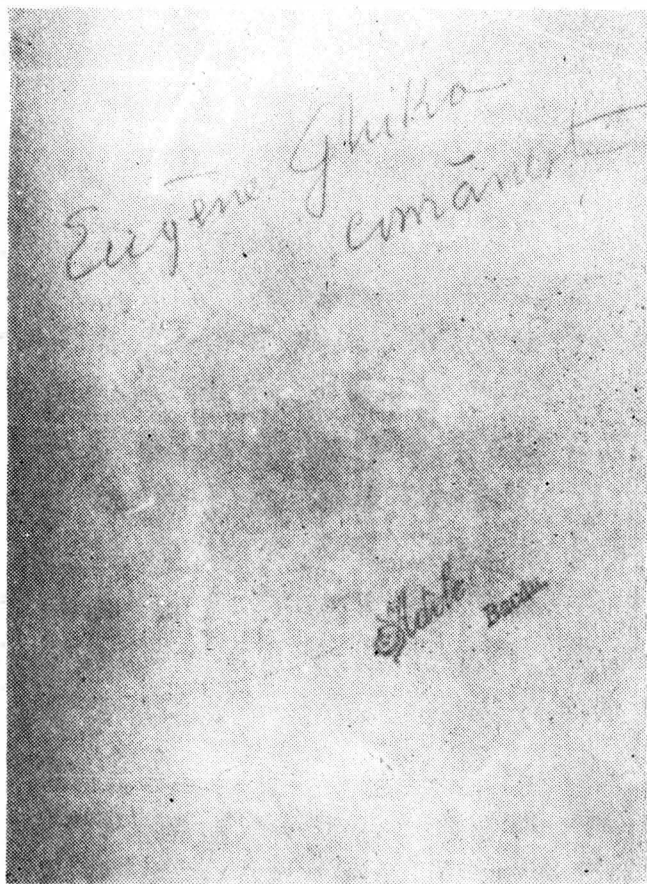 Eugène Ghika
comănești
Adèle
Bacău